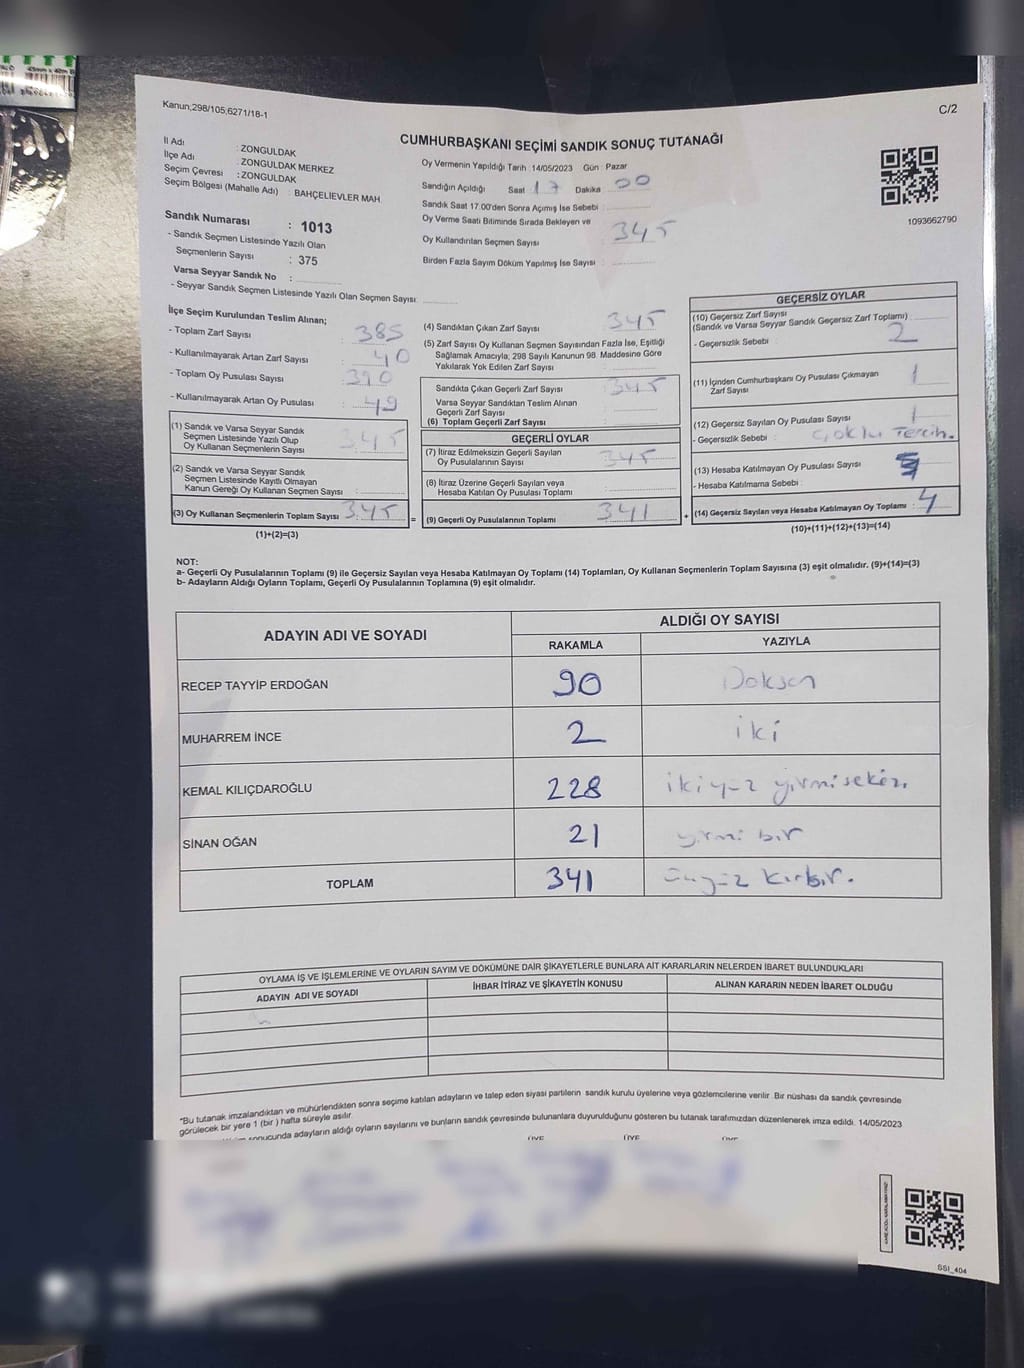 Kanun;298/105;6271/18-1
C/2
CUMHURBAŞKANI SEÇİMİ SANDIK SONUÇ TUTANAĞI
İl Adı : ZONGULDAK
İlçe Adı : ZONGULDAK MERKEZ
Seçim Çevresi : ZONGULDAK
Seçim Bölgesi (Mahalle Adı) : BAHÇELİEVLER MAH.
Sandık Numarası : 1013
- Sandık Seçmen Listesinde Yazılı Olan
Seçmenlerin Sayısı : 375
Varsa Seyyar Sandık No :
- Seyyar Sandık Seçmen Listesinde Yazılı Olan Seçmen Sayısı:
Oy Vermenin Yapıldığı Tarih : 14/05/2023 Gün : Pazar
Sandığın Açıldığı Saat 17 Dakika 00
Sandık Saat 17.00'den Sonra Açımış İse Sebebi :
Oy Verme Saati Bitiminde Sırada Bekleyen ve
Oy Kullandırılan Seçmen Sayısı : 345
Birden Fazla Sayım Döküm Yapılmış İse Sayısı :
1093662790
İlçe Seçim Kurulundan Teslim Alınan;
- Toplam Zarf Sayısı : 385
- Kullanılmayarak Artan Zarf Sayısı : 40
- Toplam Oy Pusulası Sayısı : 390
- Kullanılmayarak Artan Oy Pusulası : 49
(1) Sandık ve Varsa Seyyar Sandık
Seçmen Listesinde Yazılı Olup
Oy Kullanan Seçmenlerin Sayısı : 345
(2) Sandık ve Varsa Seyyar Sandık
Seçmen Listesinde Kayıtlı Olmayan
Kanun Gereği Oy Kullanan Seçmen Sayısı :
(3) Oy Kullanan Seçmenlerin Toplam Sayısı : 345
(1)+(2)=(3)
(4) Sandıktan Çıkan Zarf Sayısı : 345
(5) Zarf Sayısı Oy Kullanan Seçmen Sayısından Fazla İse, Eşitliği
Sağlamak Amacıyla; 298 Sayılı Kanunun 98. Maddesine Göre
Yakılarak Yok Edilen Zarf Sayısı :
Sandıkta Çıkan Geçerli Zarf Sayısı : 345
Varsa Seyyar Sandıktan Teslim Alınan
Geçerli Zarf Sayısı :
(6) Toplam Geçerli Zarf Sayısı :
GEÇERLİ OYLAR
(7) İtiraz Edilmeksizin Geçerli Sayılan
Oy Pusulalarının Sayısı : 345
(8) İtiraz Üzerine Geçerli Sayılan veya
Hesaba Katılan Oy Pusulası Toplamı :
= (9) Geçerli Oy Pusulalarının Toplamı : 341
GEÇERSİZ OYLAR
(10) Geçersiz Zarf Sayısı
(Sandık ve Varsa Seyyar Sandık Geçersiz Zarf Toplamı) : 2
- Geçersizlik Sebebi :
(11) İçinden Cumhurbaşkanı Oy Pusulası Çıkmayan
Zarf Sayısı : 1
(12) Geçersiz Sayılan Oy Pusulası Sayısı : 1
- Geçersizlik Sebebi : Çoklu Tercih.
(13) Hesaba Katılmayan Oy Pusulası Sayısı :
- Hesaba Katılmama Sebebi :
+ (14) Geçersiz Sayılan veya Hesaba Katılmayan Oy Toplamı : 4
(10)+(11)+(12)+(13)=(14)
NOT:
a- Geçerli Oy Pusulalarının Toplamı (9) ile Geçersiz Sayılan veya Hesaba Katılmayan Oy Toplamı (14) Toplamları, Oy Kullanan Seçmenlerin Toplam Sayısına (3) eşit olmalıdır. (9)+(14)=(3)
b- Adayların Aldığı Oyların Toplamı, Geçerli Oy Pusulalarının Toplamına (9) eşit olmalıdır.
ADAYIN ADI VE SOYADI
ALDIĞI OY SAYISI
RAKAMLA YAZIYLA
RECEP TAYYİP ERDOĞAN 90 Doksan
MUHARREM İNCE 2 iki
KEMAL KILIÇDAROĞLU 228 ikiyüz yirmisekiz.
SİNAN OĞAN 21 yirmi bir
TOPLAM 341 üçyüz kırkbir.
OYLAMA İŞ VE İŞLEMLERİNE VE OYLARIN SAYIM VE DÖKÜMÜNE DAİR ŞİKAYETLERLE BUNLARA AİT KARARLARIN NELERDEN İBARET BULUNDUKLARI
ADAYIN ADI VE SOYADI İHBAR İTİRAZ VE ŞİKAYETİN KONUSU ALINAN KARARIN NEDEN İBARET OLDUĞU
*Bu tutanak imzalandıktan ve mühürlendikten sonra seçime katılan adayların ve talep eden siyasi partilerin sandık kurulu üyelerine veya gözlemcilerine verilir. Bir nüshası da sandık çevresinde
görülecek bir yere 1 (bir) hafta süreyle asılır.
sonucunda adayların aldığı oyların sayılarını ve bunların sandık çevresinde bulunanlara duyurulduğunu gösteren bu tutanak tarafımızdan düzenlenerek imza edildi. 14/05/2023
ÜYE ÜYE ÜYE
SSİ_404